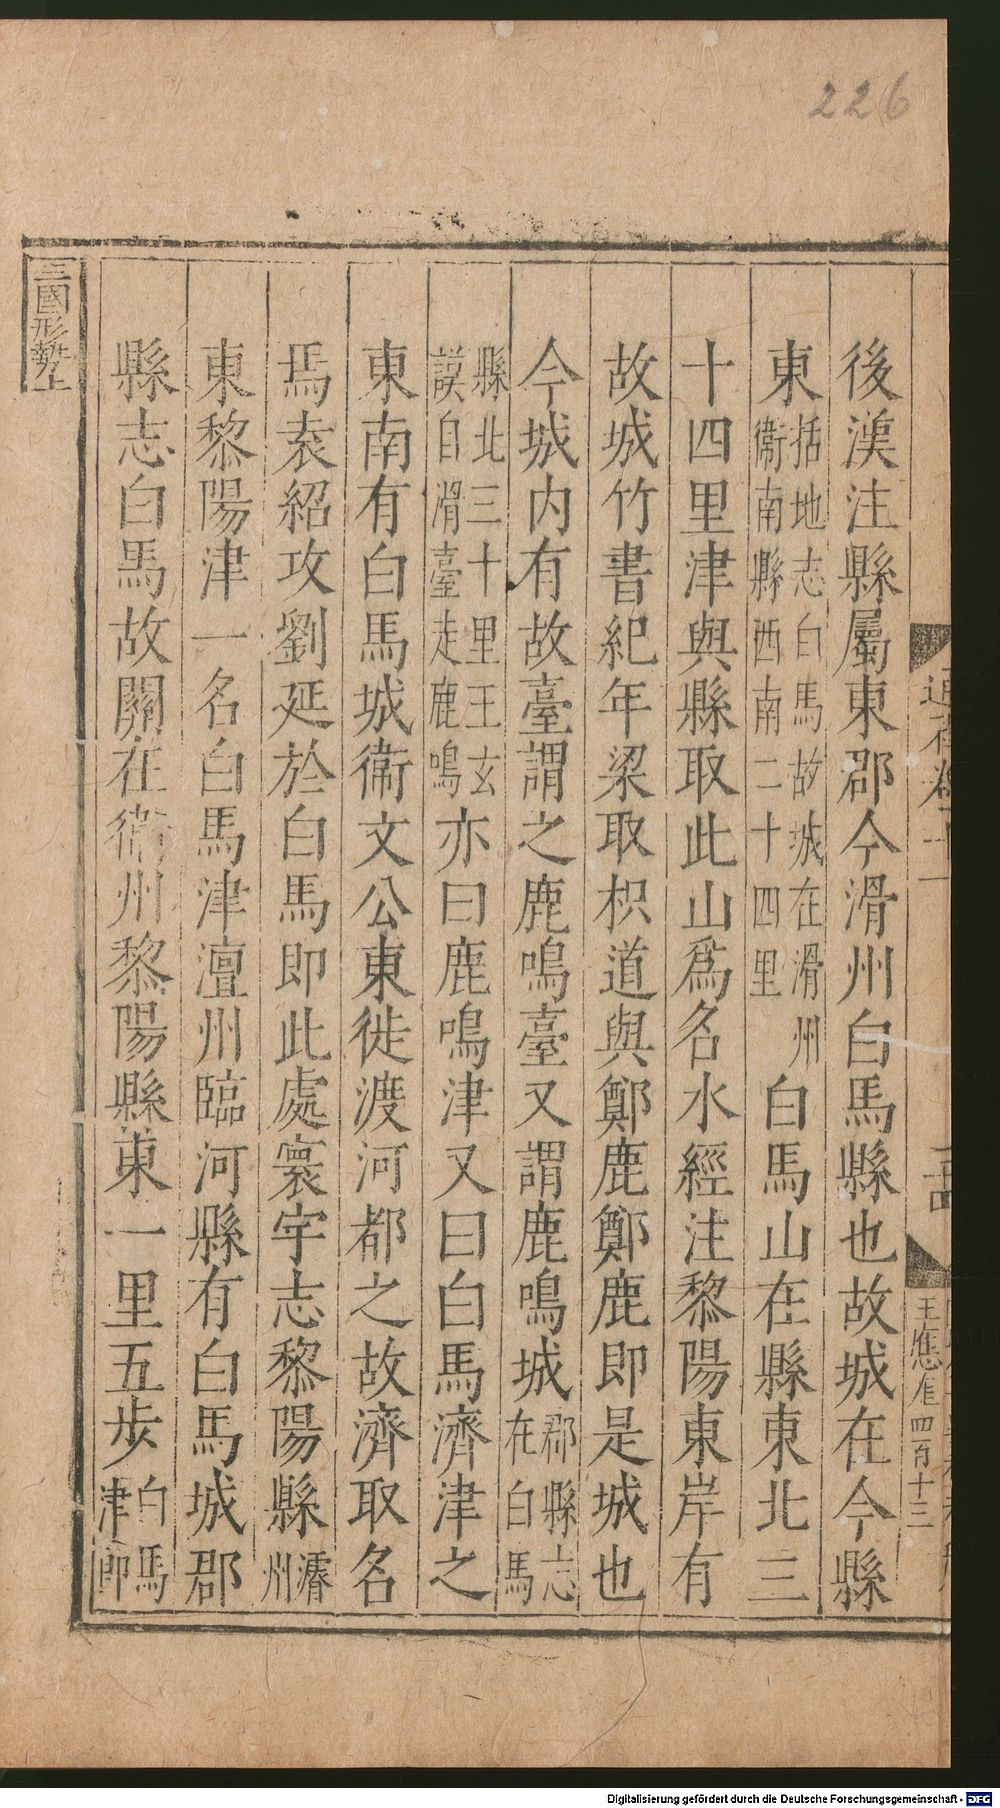 226
後漢注縣屬東郡今滑州白馬縣也故城在今縣
東括地志白馬故城在滑州衞南縣西南二十四里白馬山在縣東北三
十四里津與縣取此山爲名水經注黎陽東岸有
故城竹書紀年梁取枳道與鄭鹿鄭鹿即是城也
今城内有故臺謂之鹿鳴臺又謂鹿鳴城郡縣志在白馬
縣北三十里王玄謨自滑臺走鹿鳴亦曰鹿鳴津又曰白馬濟津之
東南有白馬城衞文公東徙渡河都之故濟取名
焉袁紹攻劉延於白馬即此處寰宇志黎陽縣濬州
東黎陽津一名白馬津澶州臨河縣有白馬城郡
縣志白馬故關在衞州黎陽縣東一里五步白馬津即
三國形勢上
王應 四百十三
Digitalisierung gefördert durch die Deutsche Forschungsgemeinschaft - DFG